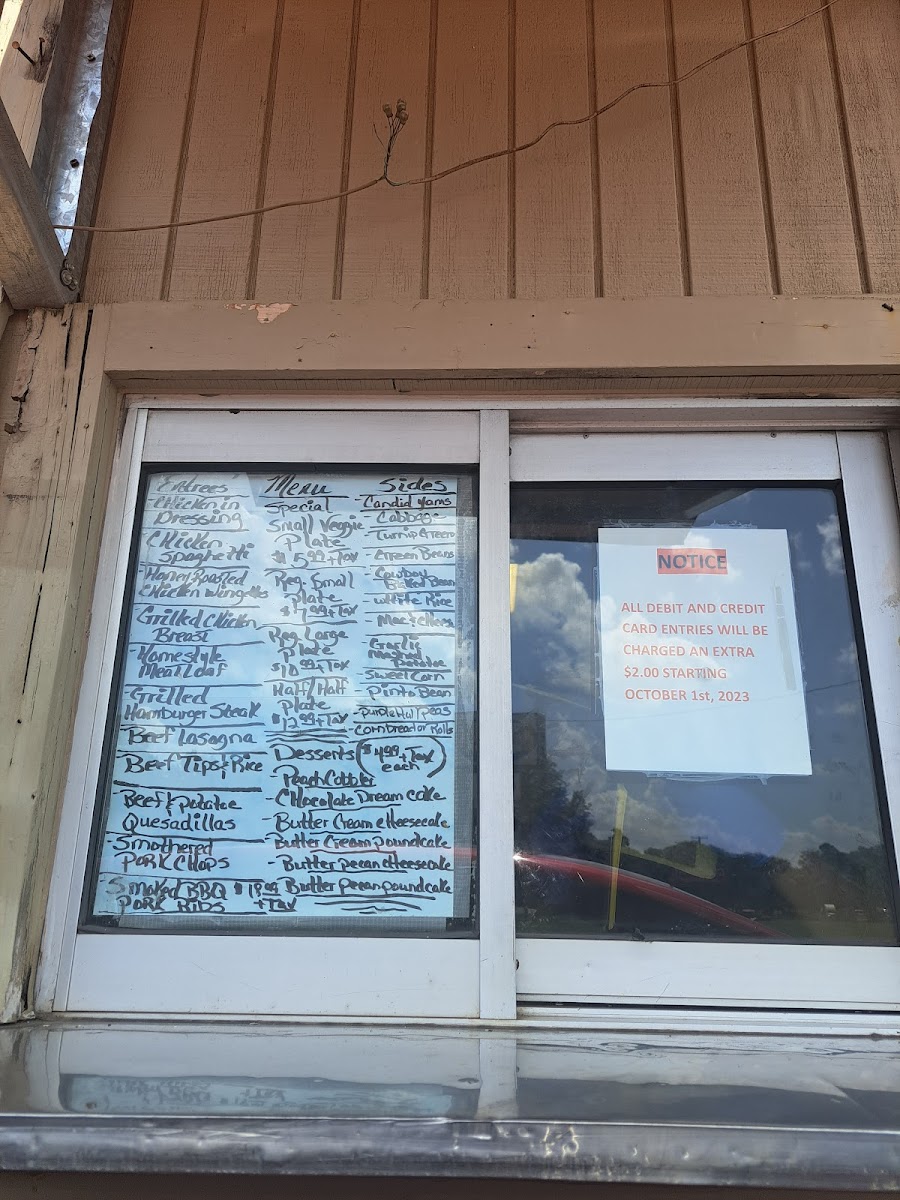 Entrees
Chicken in
Dressing
Chicken
Spaghetti
Honey Roasted
Chicken Wings
Grilled Chicken
Breast
Homestyle
Meat Loaf
Grilled
Hamburger Steak
Beef Lasagna
Beef Tips & Rice
Beef & potatoe
Quesadillas
-Smothered
PORK CHOPS
Smoked BBQ $18.99
PORK RIBS +TAX
Menu
Special
Small Veggie
Plate
$5.99+Tax
Reg. Small
plate
$7.99+Tax
Reg. Large
Plate
$10.99+Tax
Half/Half
Plate
$12.99+Tax
Desserts ($4.99+Tax
each)
Peach Cobbler
-Chocolate Dream cake
-Butter Cream cheesecake
-Butter Cream poundcake
-Butter pecan cheesecake
Butter pecan poundcake
Sides
-Candid Yams
-Cabbage
-Turnip Green
-Green Beans
Cowboy
Baked Bean
White Rice
Mac & Chees
Garlic
Mashed
Potatoe
-Sweet Corn
-Pinto Bean
-Purple Hull peas
-Cornbread or Rolls
NOTICE
ALL DEBIT AND CREDIT
CARD ENTRIES WILL BE
CHARGED AN EXTRA
$2.00 STARTING
OCTOBER 1st, 2023